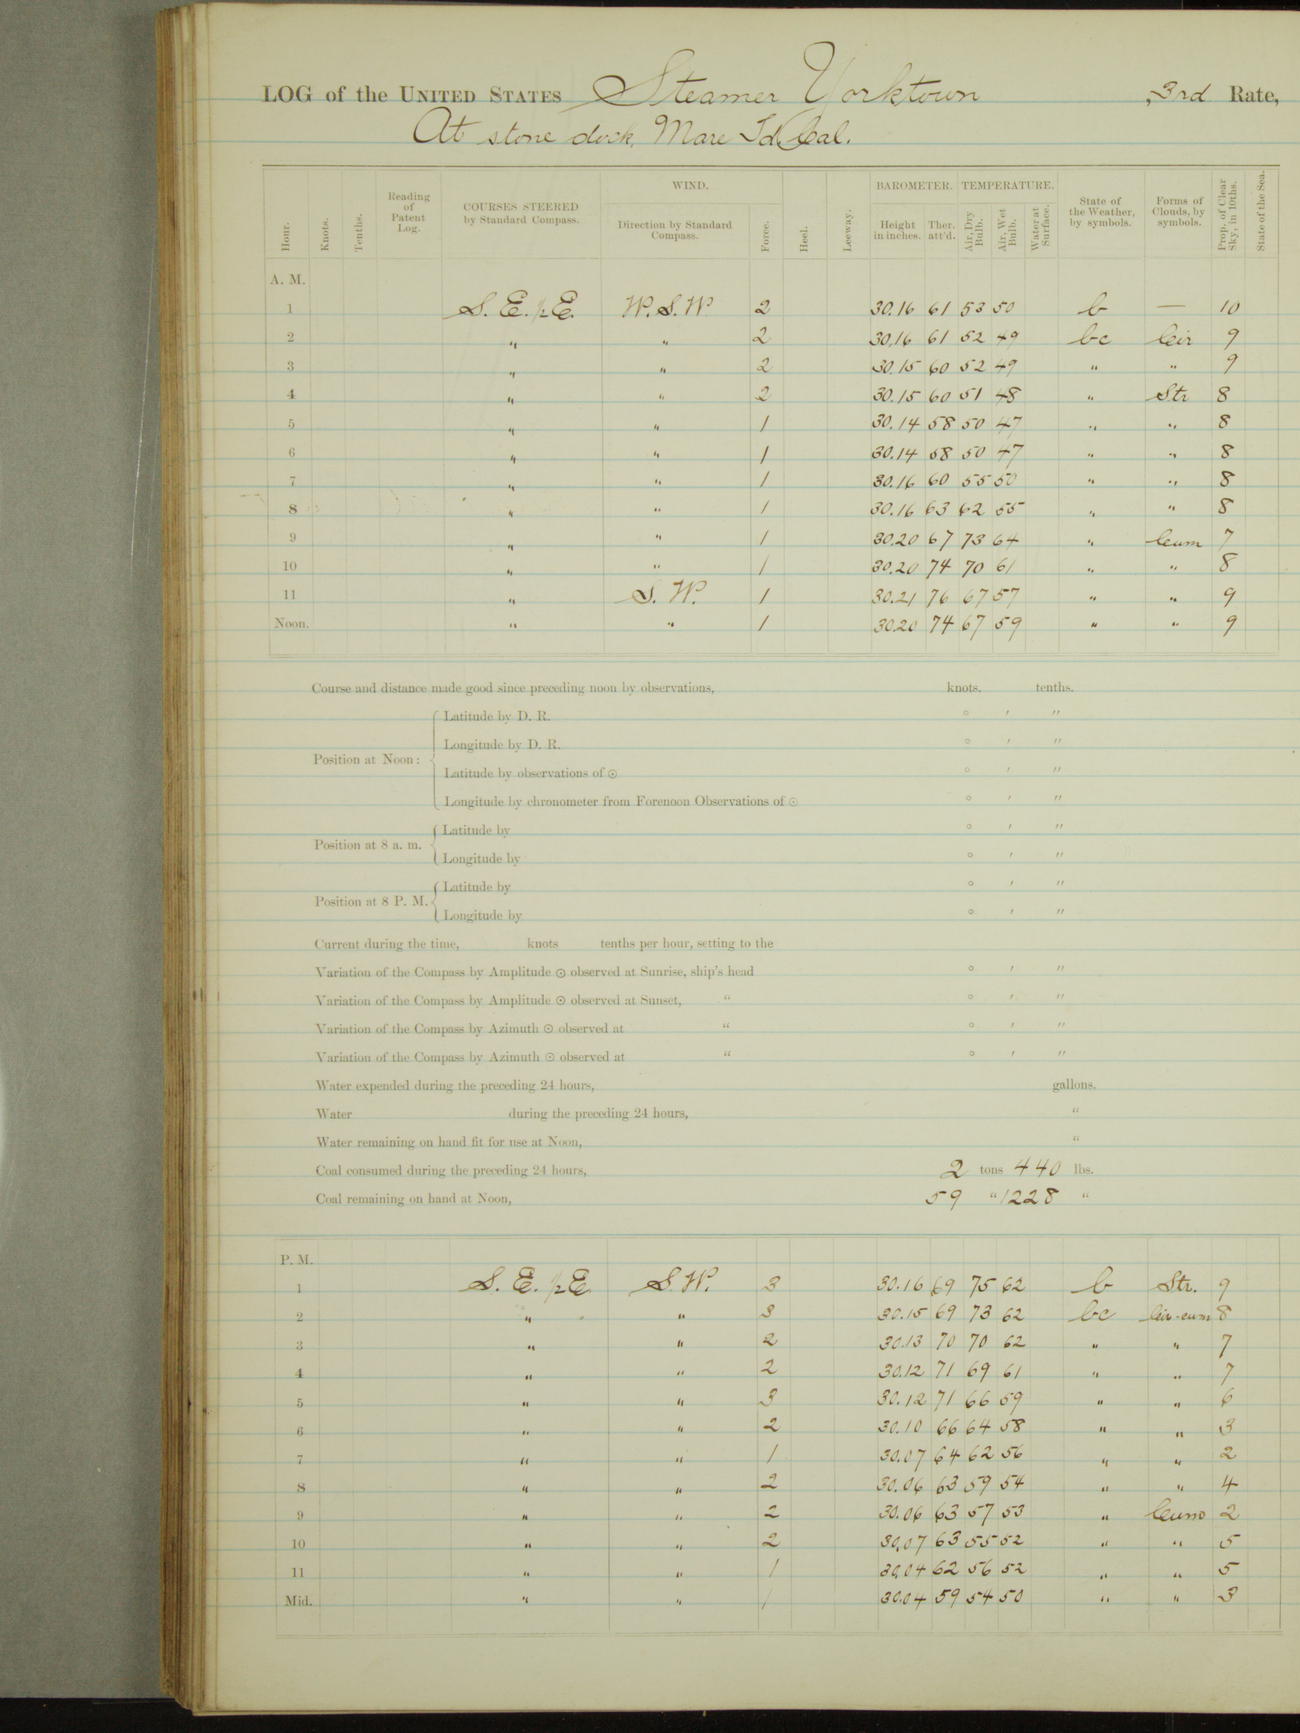 LOG of the UNITED STATES Steamer Yorktown , 3rd Rate,
At stone dock, Mare Id. Cal.
Hour. Knots. Tenths. Reading of Patent Log. COURSES STEERED by Standard Compass. WIND. Direction by Standard Compass. Force. Heel. Leeway. BAROMETER. Height in inches. Ther. att'd. TEMPERATURE. Air, Dry Bulb. Air, Wet Bulb. Water at Surface. State of the Weather, by symbols. Forms of Clouds, by symbols. Prop. of Clear Sky, in 10ths. State of the Sea.
A. M.
1 S. E. ½ E. W. S. W 2 30.16 61 53 50 b — 10
2 " " 2 30.16 61 52 49 bc Cir 9
3 " " 2 30.15 60 52 49 " " 9
4 " " 2 30.15 60 51 48 " Str 8
5 " " 1 30.14 58 50 47 " " 8
6 " " 1 30.14 58 50 47 " " 8
7 " " 1 30.16 60 55 50 " " 8
8 " " 1 30.16 63 62 55 " " 8
9 " " 1 30.20 67 73 64 " Cum 7
10 " " 1 30.20 74 70 61 " " 8
11 " S. W. 1 30.21 76 67 57 " " 9
Noon. " " 1 30.20 74 67 59 " " 9
Course and distance made good since preceding noon by observations, knots. tenths.
Position at Noon:
Latitude by D. R. ° ′ ″
Longitude by D. R. ° ′ ″
Latitude by observations of ☉ ° ′ ″
Longitude by chronometer from Forenoon Observations of ☉ ° ′ ″
Position at 8 a. m.
Latitude by ° ′ ″
Longitude by ° ′ ″
Position at 8 P. M.
Latitude by ° ′ ″
Longitude by ° ′ ″
Current during the time, knots tenths per hour, setting to the
Variation of the Compass by Amplitude ☉ observed at Sunrise, ship's head ° ′ ″
Variation of the Compass by Amplitude ☉ observed at Sunset, " ° ′ ″
Variation of the Compass by Azimuth ☉ observed at " ° ′ ″
Variation of the Compass by Azimuth ☉ observed at " ° ′ ″
Water expended during the preceding 24 hours, gallons.
Water during the preceding 24 hours, "
Water remaining on hand fit for use at Noon, "
Coal consumed during the preceding 24 hours, 2 tons 440 lbs.
Coal remaining on hand at Noon, 59 " 1228 "
P. M.
1 S. E. ½ E S. W. 3 30.16 69 75 62 b Str. 9
2 " " 3 30.15 69 73 62 bc Cir-cum 8
3 " " 2 30.13 70 70 62 " " 7
4 " " 2 30.12 71 69 61 " " 7
5 " " 3 30.12 71 66 59 " " 6
6 " " 2 30.10 66 64 58 " " 3
7 " " 1 30.07 64 62 56 " " 2
8 " " 2 30.06 63 59 54 " " 4
9 " " 2 30.06 63 57 53 " 2
10 " " 2 30.07 63 55 52 " " 5
11 " " 1 30.04 62 56 52 " " 5
Mid. " " 1 30.04 59 54 50 " " 3